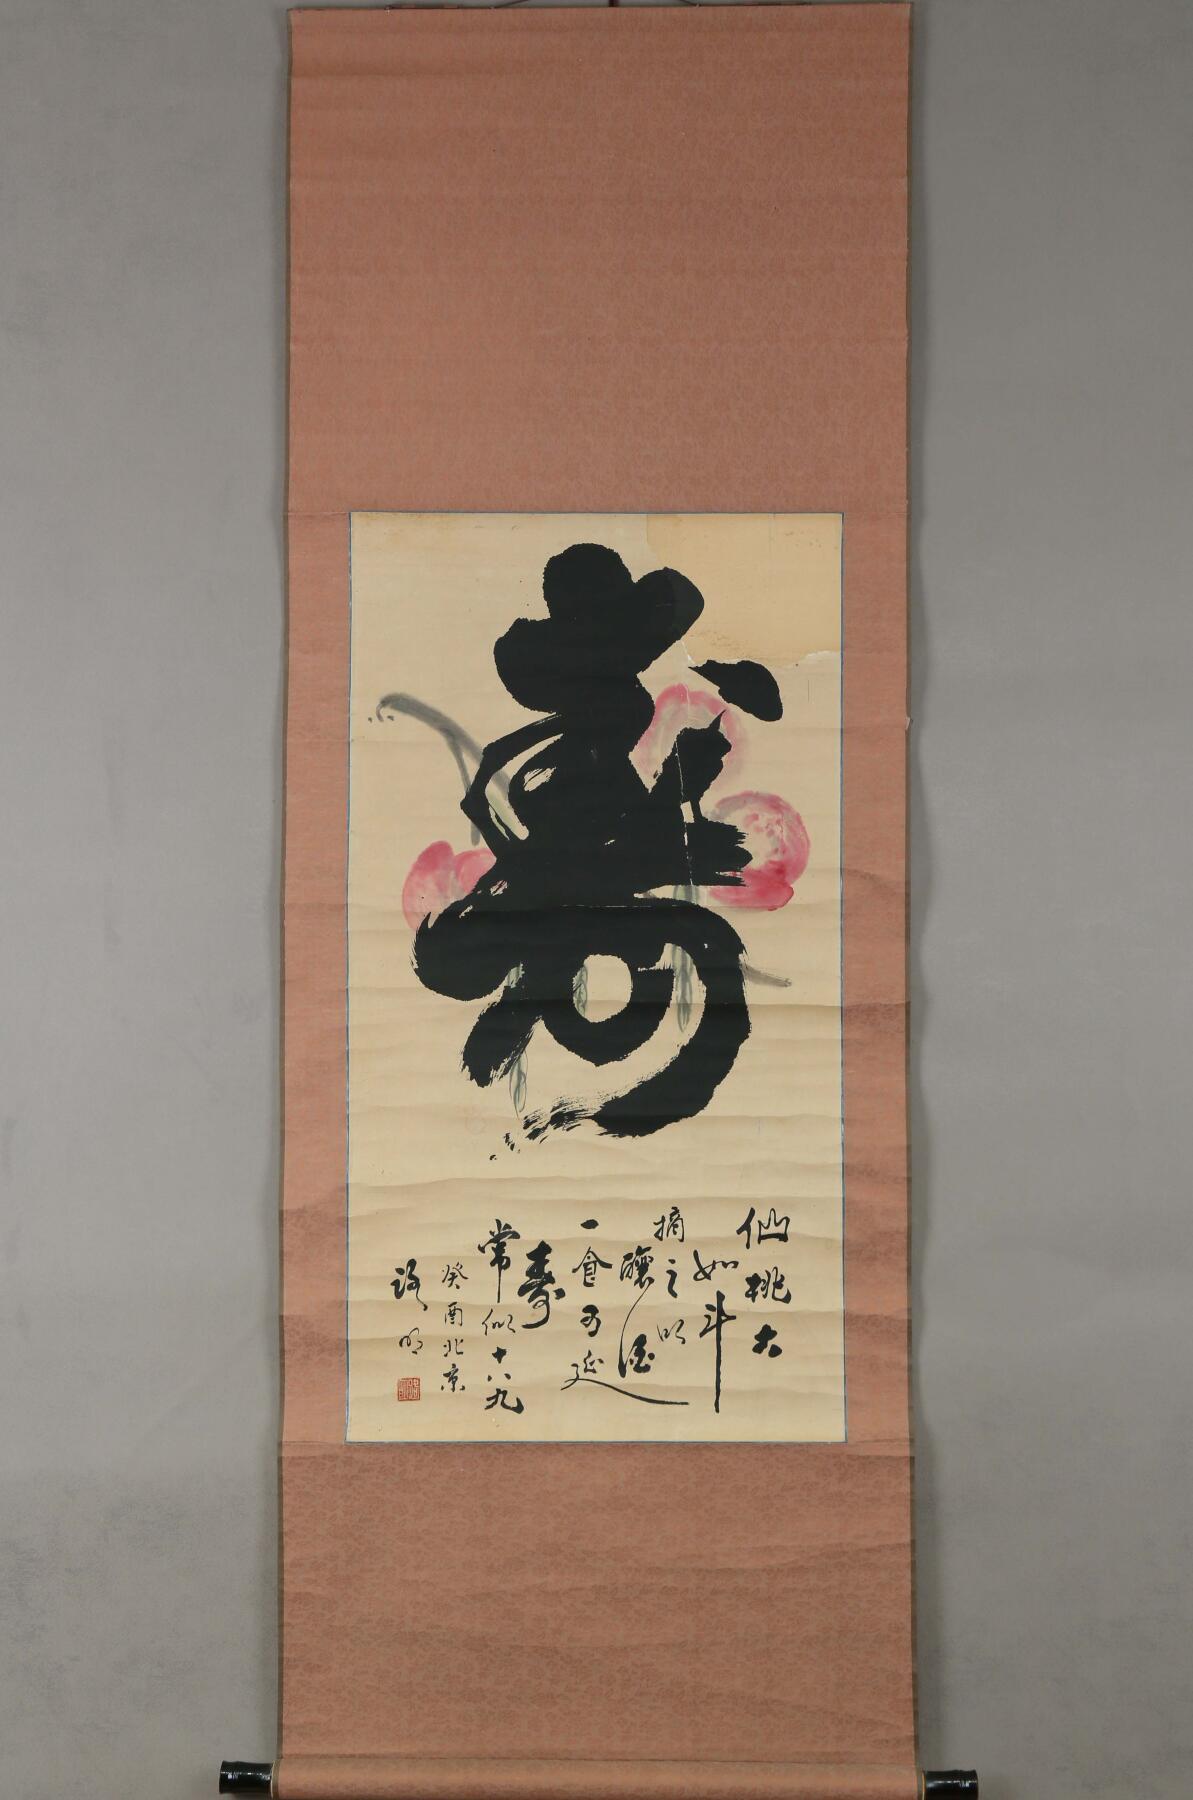 壽
仙桃大
如斗
摘之以
釀酒
一食可延
壽
常似十八九
癸酉北京